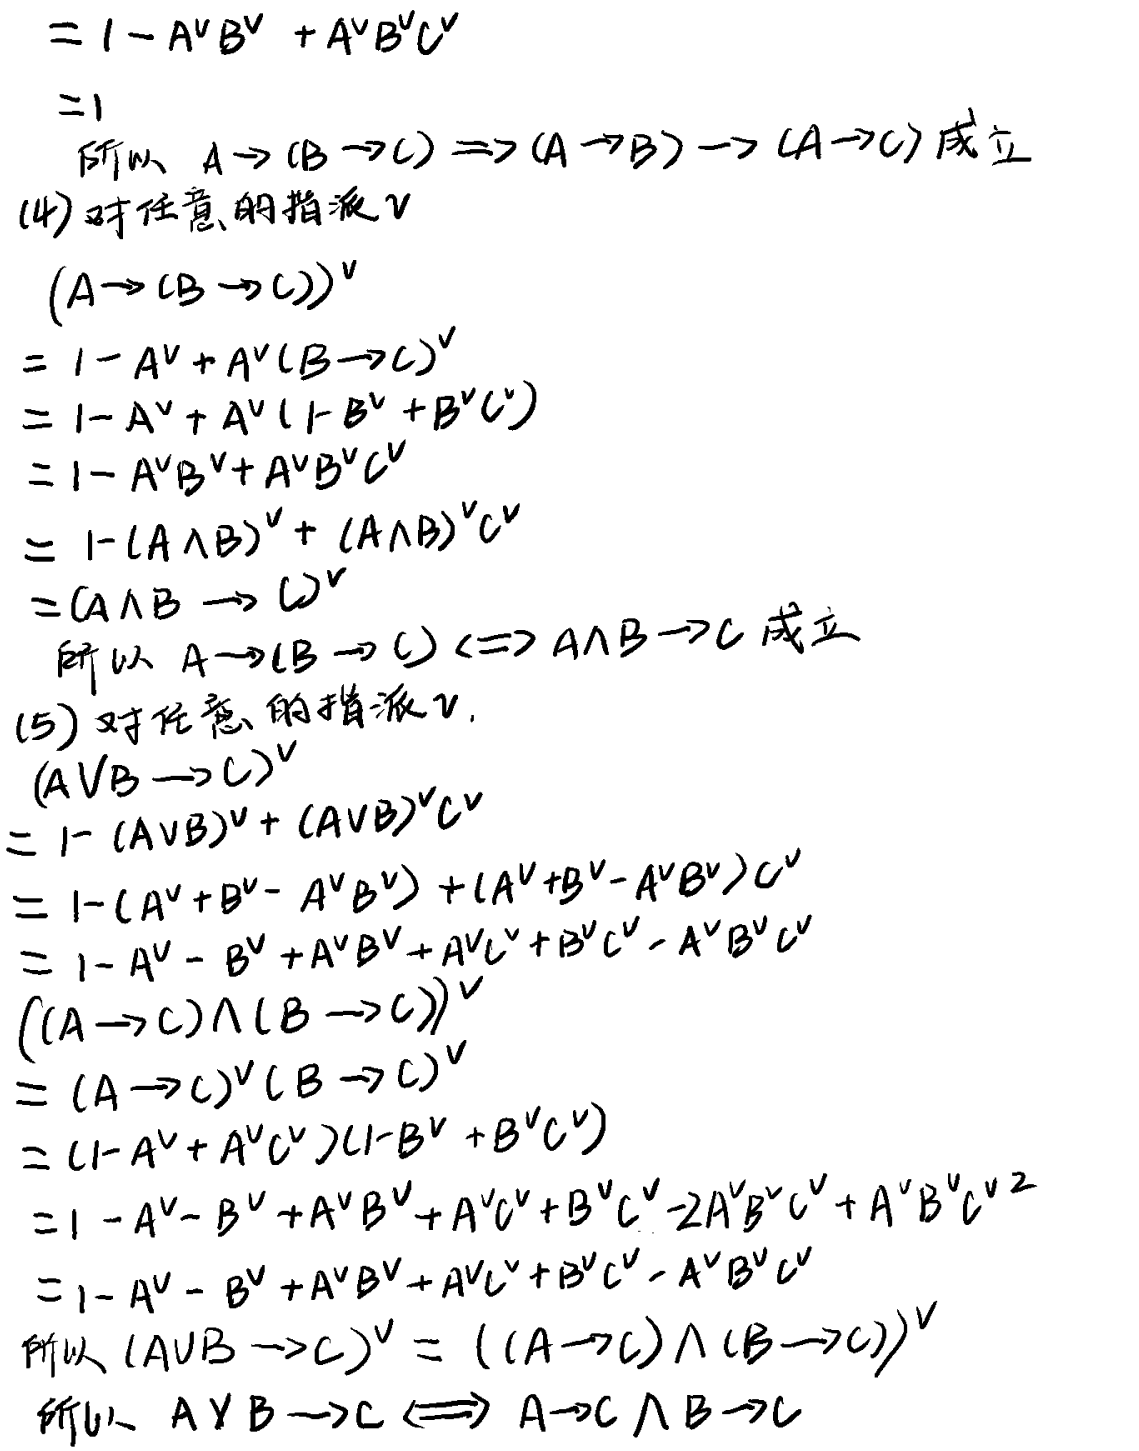 = 1 - AᵛBᵛ + AᵛBᵛCᵛ
= 1
所以 A → (B → C) ⟹ (A → B) → (A → C) 成立
(4) 对任意的指派 v
(A → (B → C))ᵛ
= 1 - Aᵛ + Aᵛ(B → C)ᵛ
= 1 - Aᵛ + Aᵛ(1 - Bᵛ + BᵛCᵛ)
= 1 - AᵛBᵛ + AᵛBᵛCᵛ
= 1 - (A ∧ B)ᵛ + (A ∧ B)ᵛCᵛ
= (A ∧ B → C)ᵛ
所以 A → (B → C) <=> A ∧ B → C 成立
(5) 对任意的指派 v.
(A ∨ B → C)ᵛ
= 1 - (A ∨ B)ᵛ + (A ∨ B)ᵛCᵛ
= 1 - (Aᵛ + Bᵛ - AᵛBᵛ) + (Aᵛ + Bᵛ - AᵛBᵛ)Cᵛ
= 1 - Aᵛ - Bᵛ + AᵛBᵛ + AᵛCᵛ + BᵛCᵛ - AᵛBᵛCᵛ
((A → C) ∧ (B → C))ᵛ
= (A → C)ᵛ(B → C)ᵛ
= (1 - Aᵛ + AᵛCᵛ)(1 - Bᵛ + BᵛCᵛ)
= 1 - Aᵛ - Bᵛ + AᵛBᵛ + AᵛCᵛ + BᵛCᵛ - 2AᵛBᵛCᵛ + AᵛBᵛCᵛ²
= 1 - Aᵛ - Bᵛ + AᵛBᵛ + AᵛCᵛ + BᵛCᵛ - AᵛBᵛCᵛ
所以 (A ∨ B → C)ᵛ = ((A → C) ∧ (B → C))ᵛ
所以 A ∨ B → C <=> A → C ∧ B → C